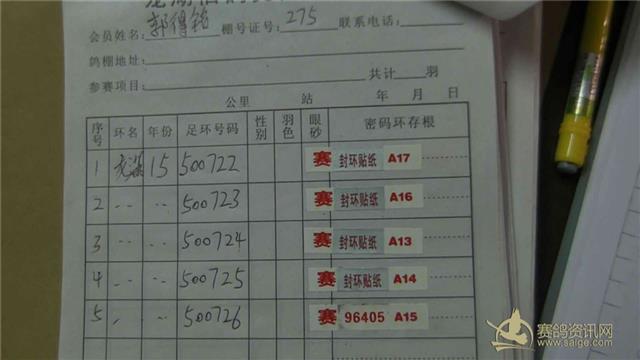 会员姓名: 郭得铭 棚号证号: 275 联系电话:
鸽棚地址:
参赛项目: 共计 羽
公里 站 年 月 日
序号 环名 年份 足环号码 性别 羽色 眼砂 密码环存根
1 15 500722 赛 封环贴纸 A17
2 -- -- 500723 赛 封环贴纸 A16
3 -- -- 500724 赛 封环贴纸 A13
4 -- -- 500725 赛 封环贴纸 A14
5 500726 赛 96405 A15
赛鸽资讯网
www.saige.com